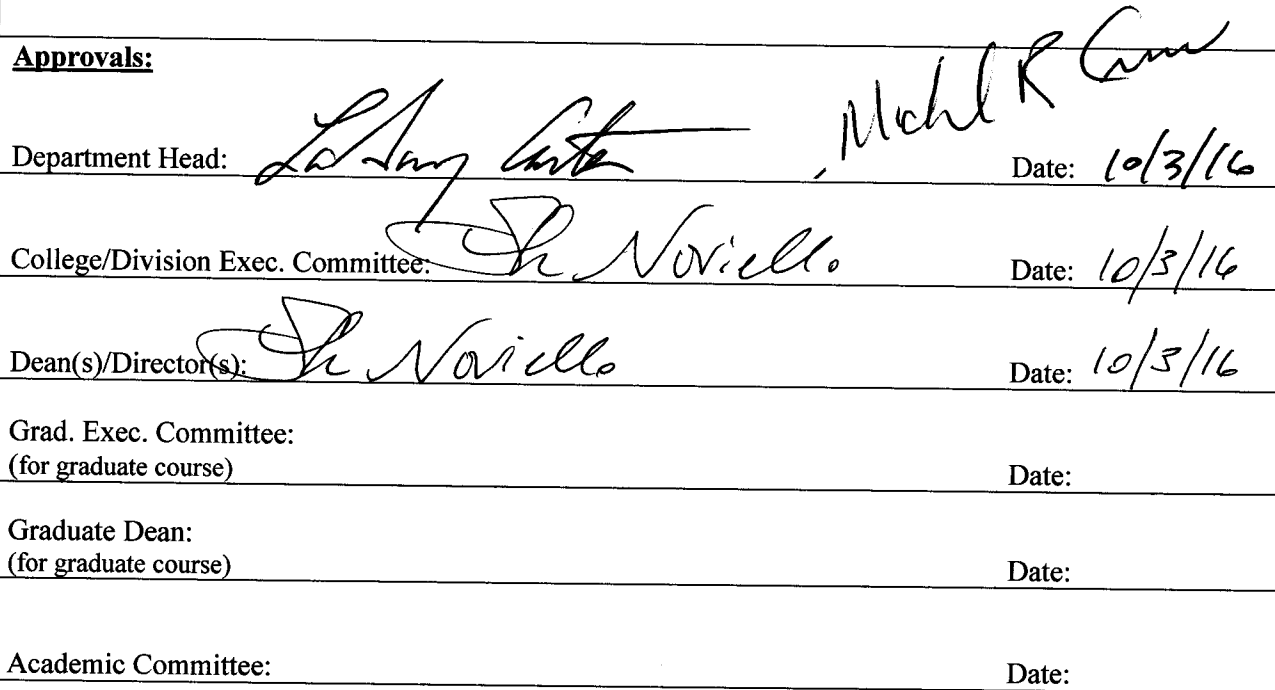 Approvals:
Department Head: Carter, Michael R Date: 10/3/16
College/Division Exec. Committee: Noviello Date: 10/3/16
Dean(s)/Director(s): Noviello Date: 10/3/16
Grad. Exec. Committee:
(for graduate course) Date:
Graduate Dean:
(for graduate course) Date:
Academic Committee: Date: